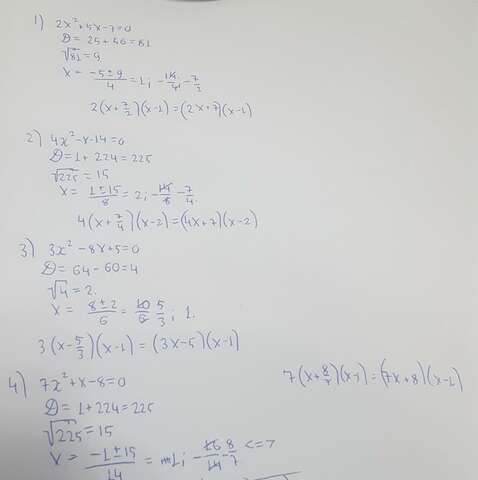 1) 2x²+5x-7=0
D = 25+56=81
√81=9
x = (-5±9)/4 = 1; -14/4 -7/2
2(x+7/2)(x-1)=(2x+7)(x-1)
2) 4x²-x-14=0
D=1+224=225
√225=15
x = (1±15)/8 = 2; - -7/4
4(x+7/4)(x-2)=(4x+7)(x-2)
3) 3x²-8x+5=0
D=64-60=4
√4=2.
x = (8±2)/6 = 10/6 5/3; 1.
3(x-5/3)(x-1)=(3x-5)(x-1)
4) 7x²+x-8=0
7(x+8/7)(x-1)=(7x+8)(x-1)
D=1+224=225
√225=15
x = (-1±15)/14 = 1; -16/14 -8/7 <=>